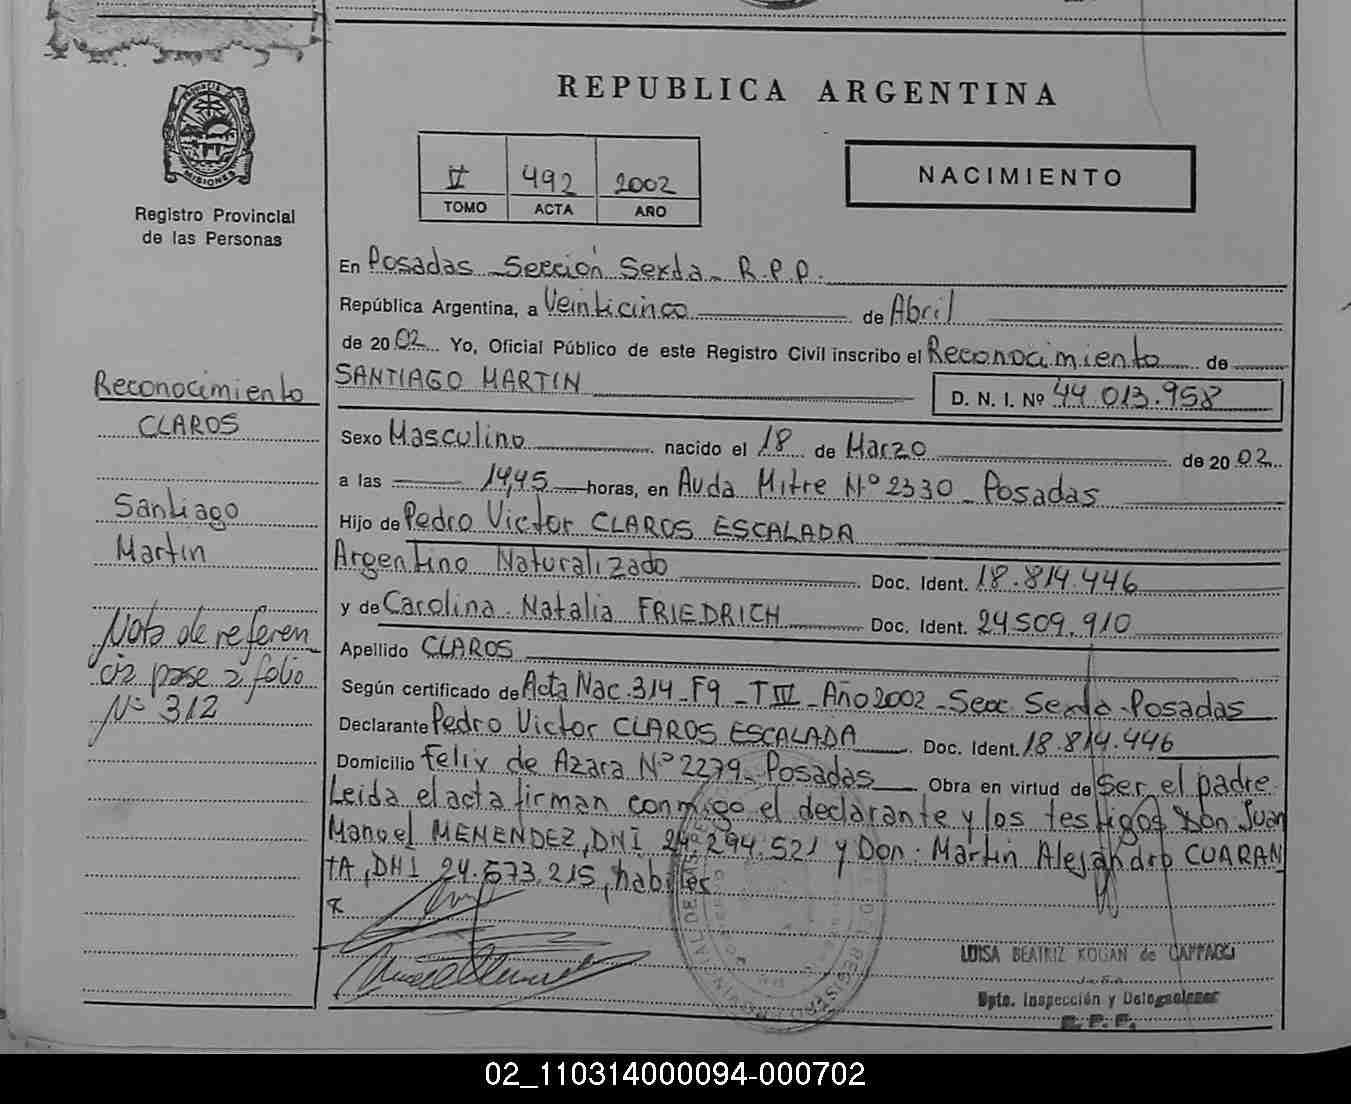 REPUBLICA ARGENTINA
PROVINCIA DE
MISIONES
Registro Provincial
de las Personas
IV 492 2002
TOMO ACTA AÑO
NACIMIENTO
En Posadas - Sección Sexta - R.P.P.
República Argentina, a Veinticinco de Abril
de 2002 Yo, Oficial Público de este Registro Civil inscribo el Reconocimiento de
SANTIAGO MARTIN D. N. I. Nº 44.013.958
Sexo Masculino nacido el 18 de Marzo de 2002
a las 14,45 horas, en Avda Mitre Nº 2330 - Posadas
Hijo de Pedro Victor CLAROS ESCALADA
Argentino Naturalizado Doc. Ident. 18.814.446
y de Carolina Natalia FRIEDRICH Doc. Ident. 24509.910
Apellido CLAROS
Según certificado de Acta Nac. 314 - F9 - T III - Año 2002 - Secc Sexta - Posadas
Declarante Pedro Victor CLAROS ESCALADA Doc. Ident. 18.814.446
Domicilio Felix de Azara Nº 2279 - Posadas Obra en virtud de Ser el padre
Leida el acta firman conmigo el declarante y los testigos Don Juan
Manuel MENENDEZ, DNI 24.294.521 y Don Martin Alejandro CUARAN
TA, DNI 24.573.215, habiles
Reconocimiento
CLAROS
Santiago
Martin
Nota de referen
cia pase a folio
Nº 312
LUISA BEATRIZ KOGAN de
Jefe
Dpto. Inspección y Delegaciones
R. P. P.
02_110314000094-000702